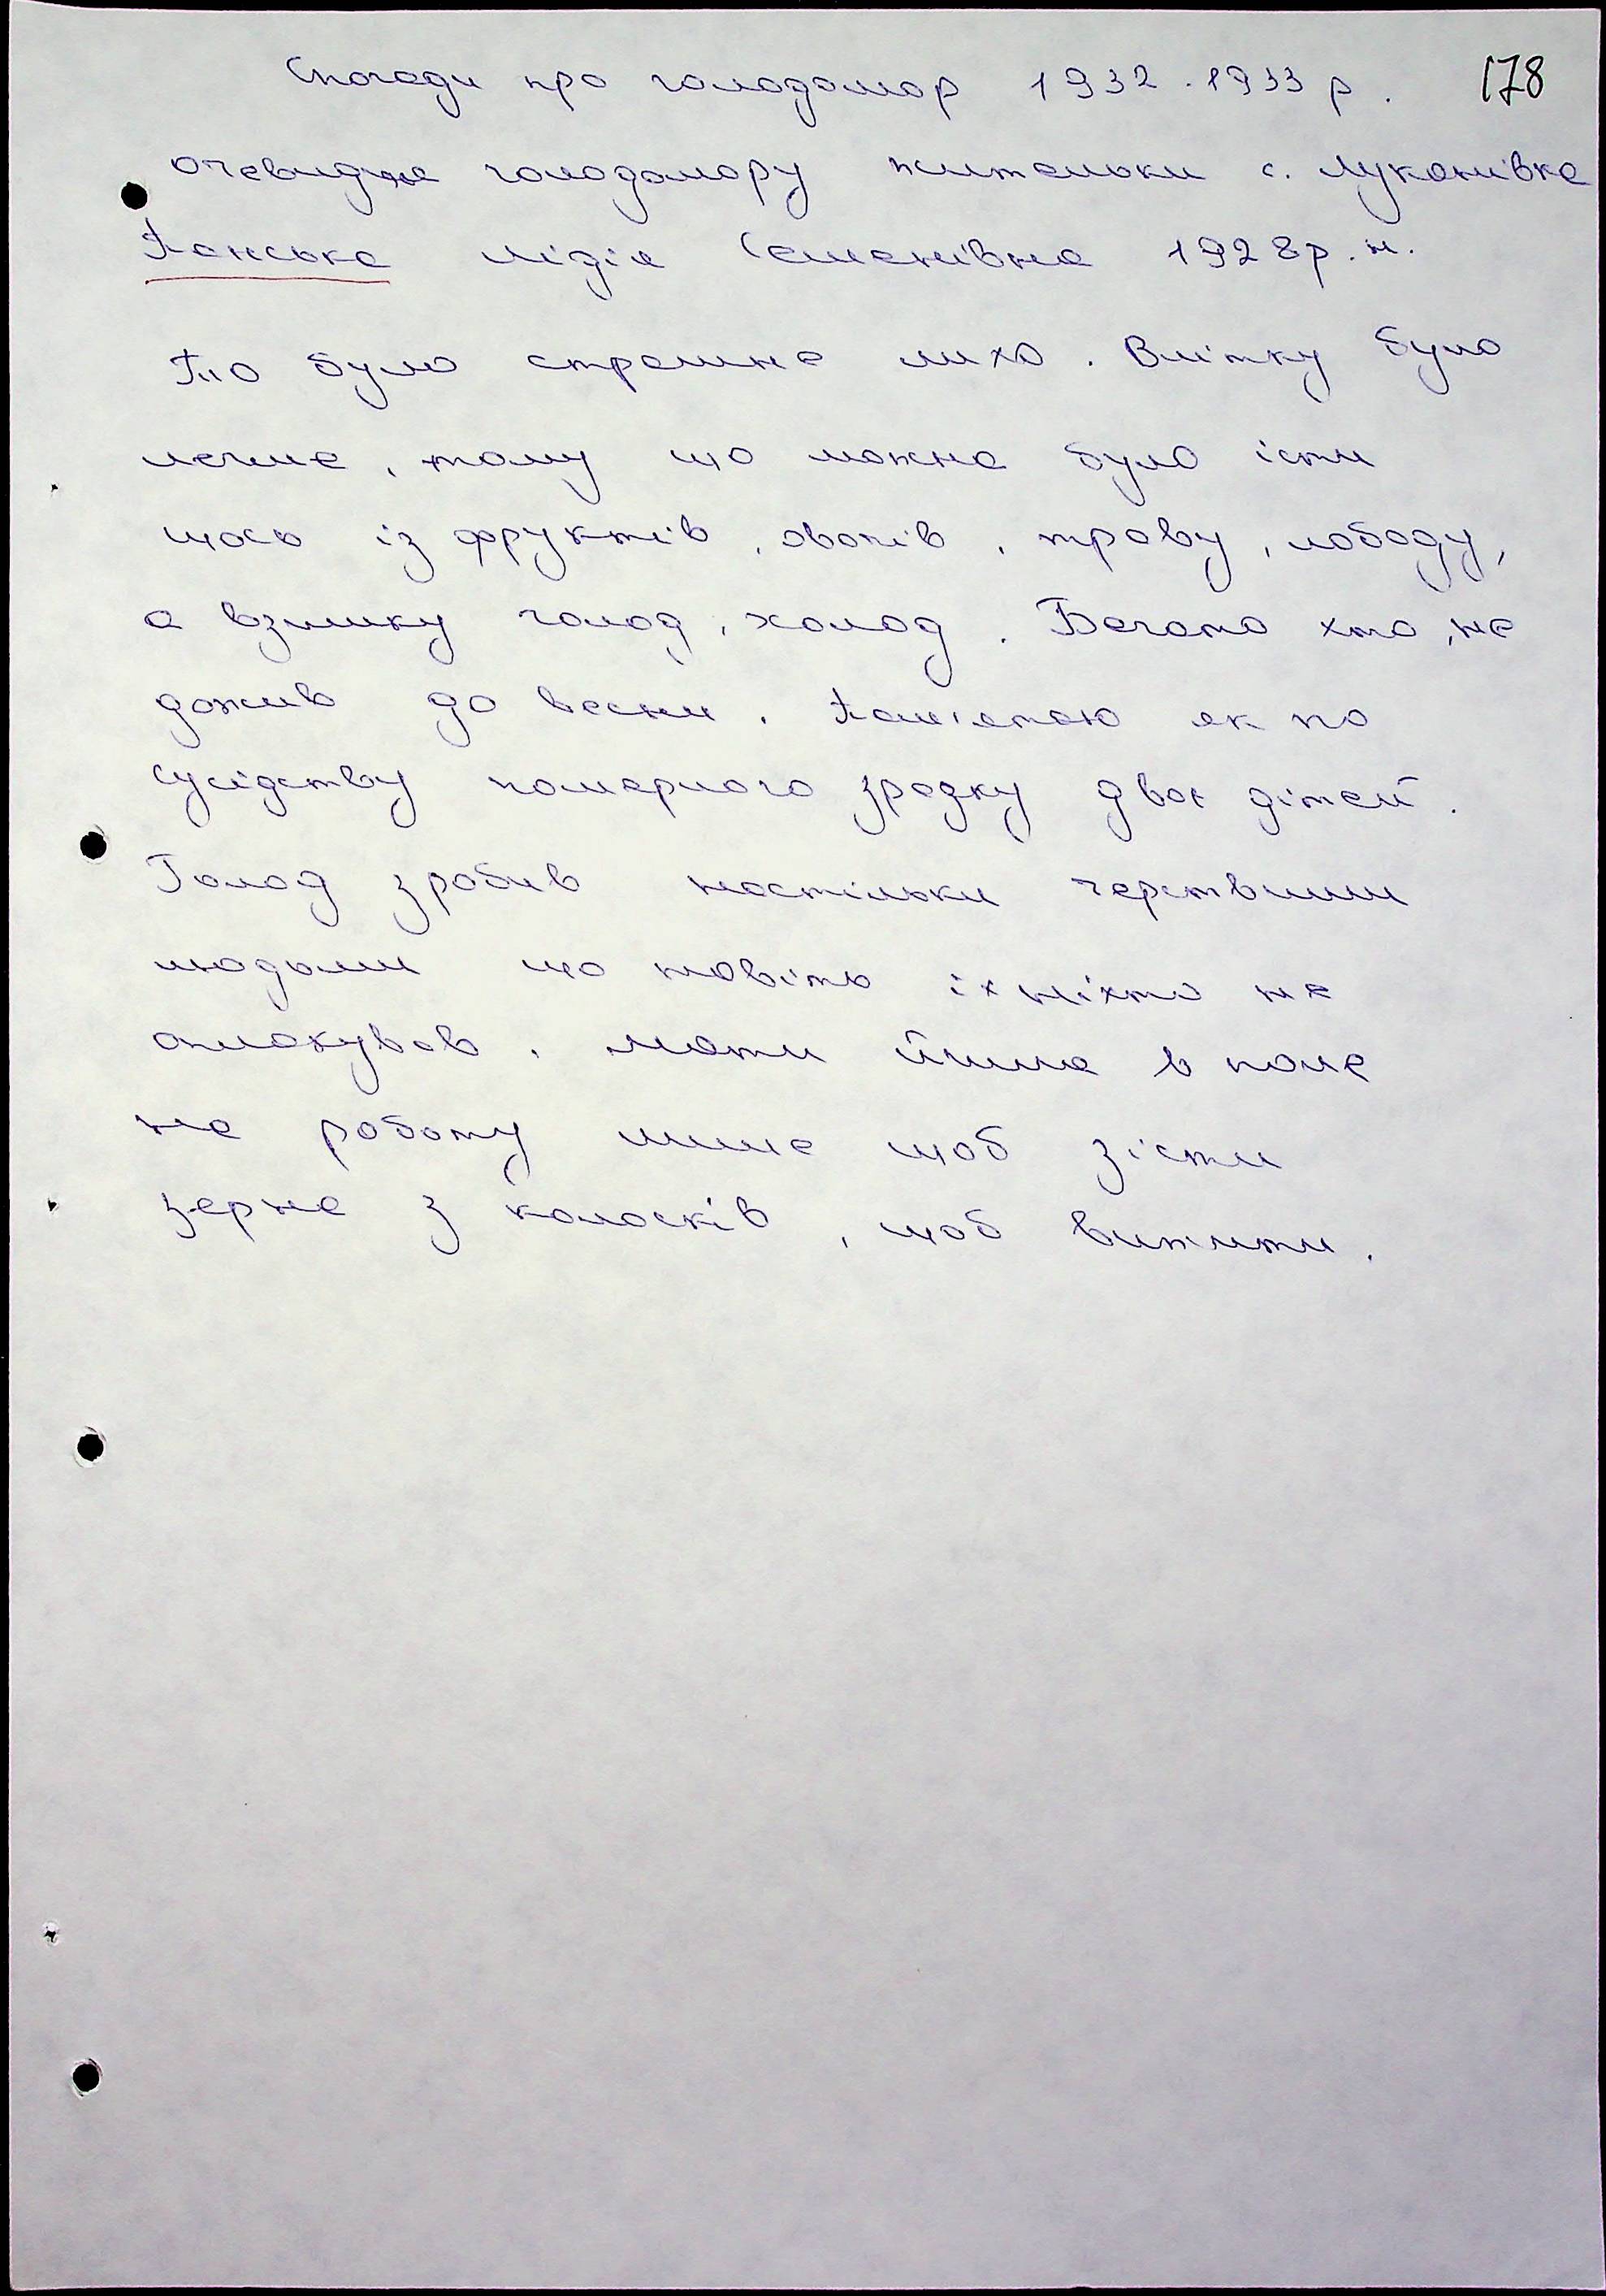 Спогади про голодомор 1932-1933 р. 178
очевидця голодомору жительки с. Луканівка
Панська Лідія Семенівна 1928 р. н.
То було страшне лихо. Влітку було
легше, тому що можна було їсти
щось із фруктів, овочів, траву, лободу,
а взимку голод, холод. Багато хто, не
дожив до весни. Пам'ятаю як по
сусідству померло зразку двоє дітей.
Голод зробив настільки черствими
людьми що навіть їх ніхто не
оплакував. Мати йшла в поле
на роботу лише щоб зїсти
зерна з колосків, щоб вижити.